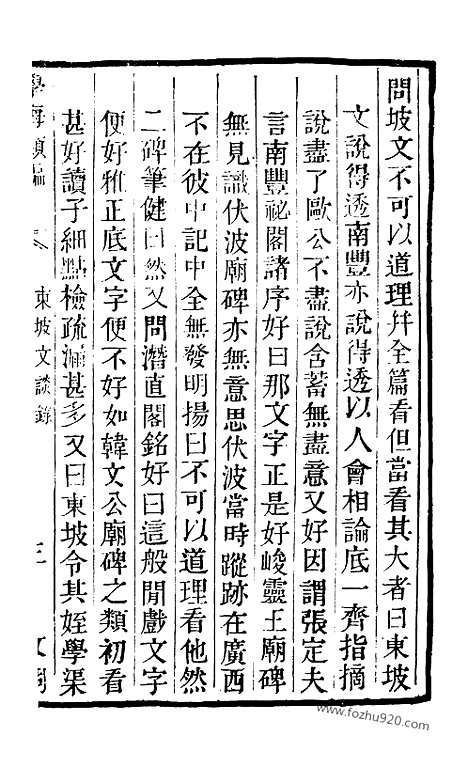 問坡文不可以道理幷全篇看但當看其大者曰東坡
文說得透南豐亦說得透以人會相論底一齊指摘
說盡了歐公不盡說含蓄無盡意又好因謂張定夫
言南豐祕閣諸序好曰那文字正是好峻靈王廟碑
無見識伏波廟碑亦無意思伏波當時蹤跡在廣西
不在彼中記中全無發明揚曰不可以道理看他然
二碑筆健曰然又問潛直閣銘好曰這般閒戲文字
便好雅正底文字便不好如韓文公廟碑之類初看
甚好讀子細點檢疏漏甚多又曰東坡令其姪學渠
學海類編
東坡文談錄
三
www.fozhu920.com